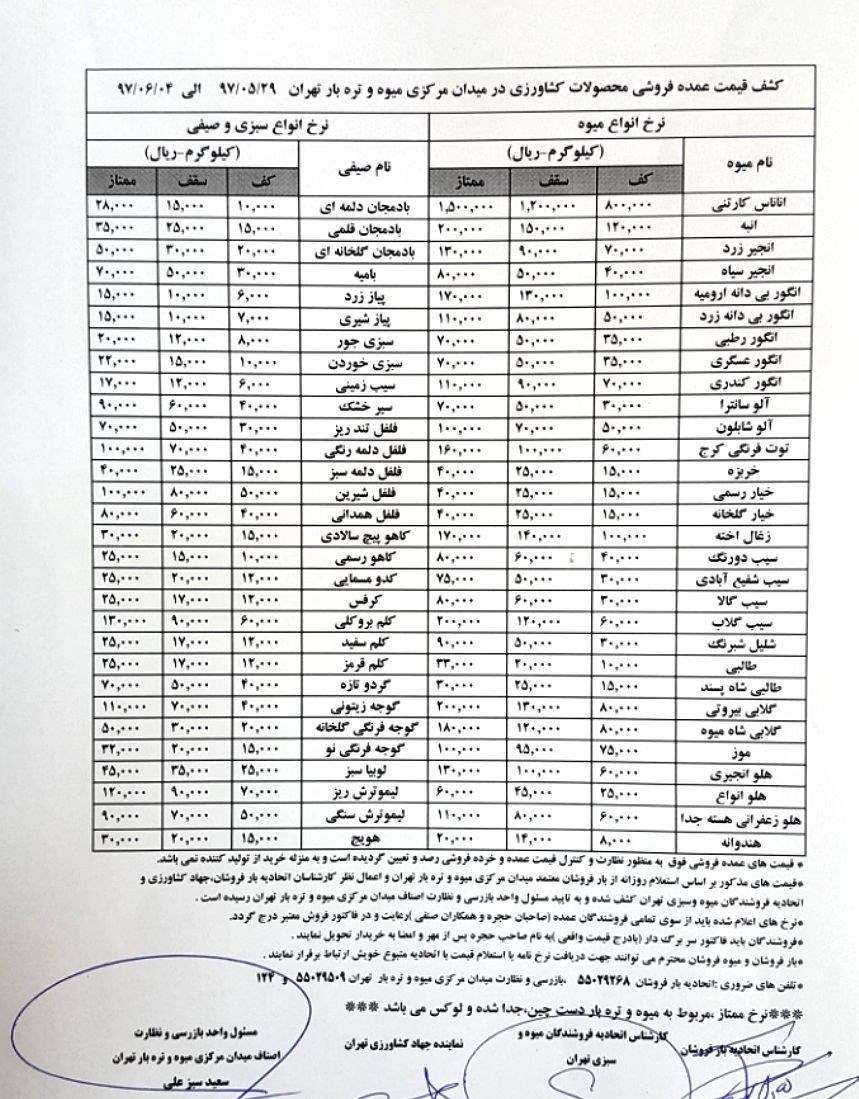 کشف قیمت عمده فروشی محصولات کشاورزی در میدان مرکزی میوه و تره بار تهران ۹۷/۰۵/۲۹ الی ۹۷/۰۶/۰۴
نرخ انواع میوه نرخ انواع سبزی و صیفی
نام میوه (کیلوگرم-ریال) نام صیفی (کیلوگرم-ریال)
کف سقف ممتاز کف سقف ممتاز
اناناس کارتنی ۸۰۰,۰۰۰ ۱,۲۰۰,۰۰۰ ۱,۵۰۰,۰۰۰ بادمجان دلمه ای ۱۰,۰۰۰ ۱۵,۰۰۰ ۲۸,۰۰۰
انبه ۱۲۰,۰۰۰ ۱۵۰,۰۰۰ ۲۰۰,۰۰۰ بادمجان قلمی ۱۵,۰۰۰ ۲۵,۰۰۰ ۳۵,۰۰۰
انجیر زرد ۷۰,۰۰۰ ۹۰,۰۰۰ ۱۳۰,۰۰۰ بادمجان گلخانه ای ۲۰,۰۰۰ ۳۰,۰۰۰ ۵۰,۰۰۰
انجیر سیاه ۴۰,۰۰۰ ۵۰,۰۰۰ ۸۰,۰۰۰ بامیه ۳۰,۰۰۰ ۵۰,۰۰۰ ۷۰,۰۰۰
انگور بی دانه ارومیه ۱۰۰,۰۰۰ ۱۳۰,۰۰۰ ۱۷۰,۰۰۰ پیاز زرد ۶,۰۰۰ ۱۰,۰۰۰ ۱۵,۰۰۰
انگور بی دانه زرد ۵۰,۰۰۰ ۸۰,۰۰۰ ۱۱۰,۰۰۰ پیاز شیری ۷,۰۰۰ ۱۰,۰۰۰ ۱۵,۰۰۰
انگور رطبی ۳۵,۰۰۰ ۵۰,۰۰۰ ۷۰,۰۰۰ سبزی جور ۸,۰۰۰ ۱۲,۰۰۰ ۲۰,۰۰۰
انگور عسگری ۳۵,۰۰۰ ۵۰,۰۰۰ ۷۰,۰۰۰ سبزی خوردن ۱۰,۰۰۰ ۱۵,۰۰۰ ۲۲,۰۰۰
انگور کندری ۷۰,۰۰۰ ۹۰,۰۰۰ ۱۱۰,۰۰۰ سیب زمینی ۶,۰۰۰ ۱۲,۰۰۰ ۱۷,۰۰۰
آلو سانترا ۳۰,۰۰۰ ۵۰,۰۰۰ ۷۰,۰۰۰ سیر خشک ۴۰,۰۰۰ ۶۰,۰۰۰ ۹۰,۰۰۰
آلو شابلون ۵۰,۰۰۰ ۷۰,۰۰۰ ۱۰۰,۰۰۰ فلفل تند ریز ۳۰,۰۰۰ ۵۰,۰۰۰ ۷۰,۰۰۰
توت فرنگی کرج ۶۰,۰۰۰ ۱۰۰,۰۰۰ ۱۶۰,۰۰۰ فلفل دلمه رنگی ۴۰,۰۰۰ ۷۰,۰۰۰ ۱۰۰,۰۰۰
خربزه ۱۵,۰۰۰ ۲۵,۰۰۰ ۴۰,۰۰۰ فلفل دلمه سبز ۱۵,۰۰۰ ۲۵,۰۰۰ ۴۰,۰۰۰
خیار رسمی ۱۵,۰۰۰ ۲۵,۰۰۰ ۴۰,۰۰۰ فلفل شیرین ۵۰,۰۰۰ ۸۰,۰۰۰ ۱۰۰,۰۰۰
خیار گلخانه ۱۵,۰۰۰ ۲۵,۰۰۰ ۴۰,۰۰۰ فلفل همدانی ۴۰,۰۰۰ ۶۰,۰۰۰ ۸۰,۰۰۰
زغال اخته ۱۰۰,۰۰۰ ۱۴۰,۰۰۰ ۱۷۰,۰۰۰ کاهو پیچ سالادی ۱۵,۰۰۰ ۲۰,۰۰۰ ۳۰,۰۰۰
سیب دورنگ ۴۰,۰۰۰ ۶۰,۰۰۰ ۸۰,۰۰۰ کاهو رسمی ۱۰,۰۰۰ ۱۵,۰۰۰ ۲۵,۰۰۰
سیب شفیع آبادی ۳۰,۰۰۰ ۵۰,۰۰۰ ۷۵,۰۰۰ کدو مسمایی ۱۲,۰۰۰ ۲۰,۰۰۰ ۲۵,۰۰۰
سیب گالا ۳۰,۰۰۰ ۶۰,۰۰۰ ۸۰,۰۰۰ کرفس ۱۲,۰۰۰ ۱۷,۰۰۰ ۲۵,۰۰۰
سیب گلاب ۶۰,۰۰۰ ۱۲۰,۰۰۰ ۲۰۰,۰۰۰ کلم بروکلی ۶۰,۰۰۰ ۹۰,۰۰۰ ۱۳۰,۰۰۰
شلیل شبرنگ ۳۰,۰۰۰ ۵۰,۰۰۰ ۹۰,۰۰۰ کلم سفید ۱۲,۰۰۰ ۱۷,۰۰۰ ۲۵,۰۰۰
طالبی ۱۰,۰۰۰ ۲۰,۰۰۰ ۳۳,۰۰۰ کلم قرمز ۱۲,۰۰۰ ۱۷,۰۰۰ ۲۵,۰۰۰
طالبی شاه پسند ۱۵,۰۰۰ ۲۵,۰۰۰ ۳۰,۰۰۰ گردو تازه ۴۰,۰۰۰ ۵۰,۰۰۰ ۷۰,۰۰۰
گلابی بیروتی ۸۰,۰۰۰ ۱۳۰,۰۰۰ ۲۰۰,۰۰۰ گوجه زیتونی ۴۰,۰۰۰ ۷۰,۰۰۰ ۱۱۰,۰۰۰
گلابی شاه میوه ۸۰,۰۰۰ ۱۲۰,۰۰۰ ۱۸۰,۰۰۰ گوجه فرنگی گلخانه ۲۰,۰۰۰ ۳۰,۰۰۰ ۵۰,۰۰۰
موز ۷۵,۰۰۰ ۹۵,۰۰۰ ۱۰۰,۰۰۰ گوجه فرنگی نو ۱۵,۰۰۰ ۲۰,۰۰۰ ۳۲,۰۰۰
هلو انجیری ۶۰,۰۰۰ ۱۰۰,۰۰۰ ۱۳۰,۰۰۰ لوبیا سبز ۲۵,۰۰۰ ۳۵,۰۰۰ ۴۵,۰۰۰
هلو انواع ۲۵,۰۰۰ ۴۵,۰۰۰ ۶۰,۰۰۰ لیموترش ریز ۷۰,۰۰۰ ۹۰,۰۰۰ ۱۲۰,۰۰۰
هلو زعفرانی هسته جدا ۶۰,۰۰۰ ۸۰,۰۰۰ ۱۱۰,۰۰۰ لیموترش سنگی ۵۰,۰۰۰ ۷۰,۰۰۰ ۹۰,۰۰۰
هندوانه ۸,۰۰۰ ۱۴,۰۰۰ ۲۰,۰۰۰ هویج ۱۵,۰۰۰ ۲۰,۰۰۰ ۳۰,۰۰۰
* قیمت های عمده فروشی فوق به منظور نظارت و کنترل قیمت عمده و خرده فروشی رصد و تعیین گردیده است و به منزله خرید از تولید کننده نمی باشد.
*قیمت های مذکور بر اساس استعلام روزانه از بار فروشان معتمد میدان مرکزی میوه و تره بار تهران و اعمال نظر کارشناسان اتحادیه بار فروشان،جهاد کشاورزی و
اتحادیه فروشندگان میوه وسبزی تهران کشف شده و به تایید مسئول واحد بازرسی و نظارت اصناف میدان مرکزی میوه و تره بار تهران رسیده است .
*نرخ های اعلام شده باید از سوی تمامی فروشندگان عمده (صاحبان حجره و همکاران صنفی )رعایت و در فاکتور فروش معتبر درج گردد.
*فروشندگان باید فاکتور سر برگ دار (بادرج قیمت واقعی )به نام صاحب حجره پس از مهر و امضا به خریدار تحویل نمایند .
*بار فروشان و میوه فروشان محترم می توانند جهت دریافت نرخ نامه یا استعلام قیمت با اتحادیه متبوع خویش ارتباط برقرار نمایند .
*تلفن های ضروری :اتحادیه بار فروشان ۵۵۰۲۹۲۶۸ ،بازرسی و نظارت میدان مرکزی میوه و تره بار تهران ۵۵۰۲۹۵۰۹ و ۱۲۴
***نرخ ممتاز ،مربوط به میوه و تره بار دست چین،جدا شده و لوکس می باشد ***
کارشناس اتحادیه بار فروشان
کارشناس اتحادیه فروشندگان میوه و
سبزی تهران
نماینده جهاد کشاورزی تهران
مسئول واحد بازرسی و نظارت
اصناف میدان مرکزی میوه و تره بار تهران
سعید سبز علی